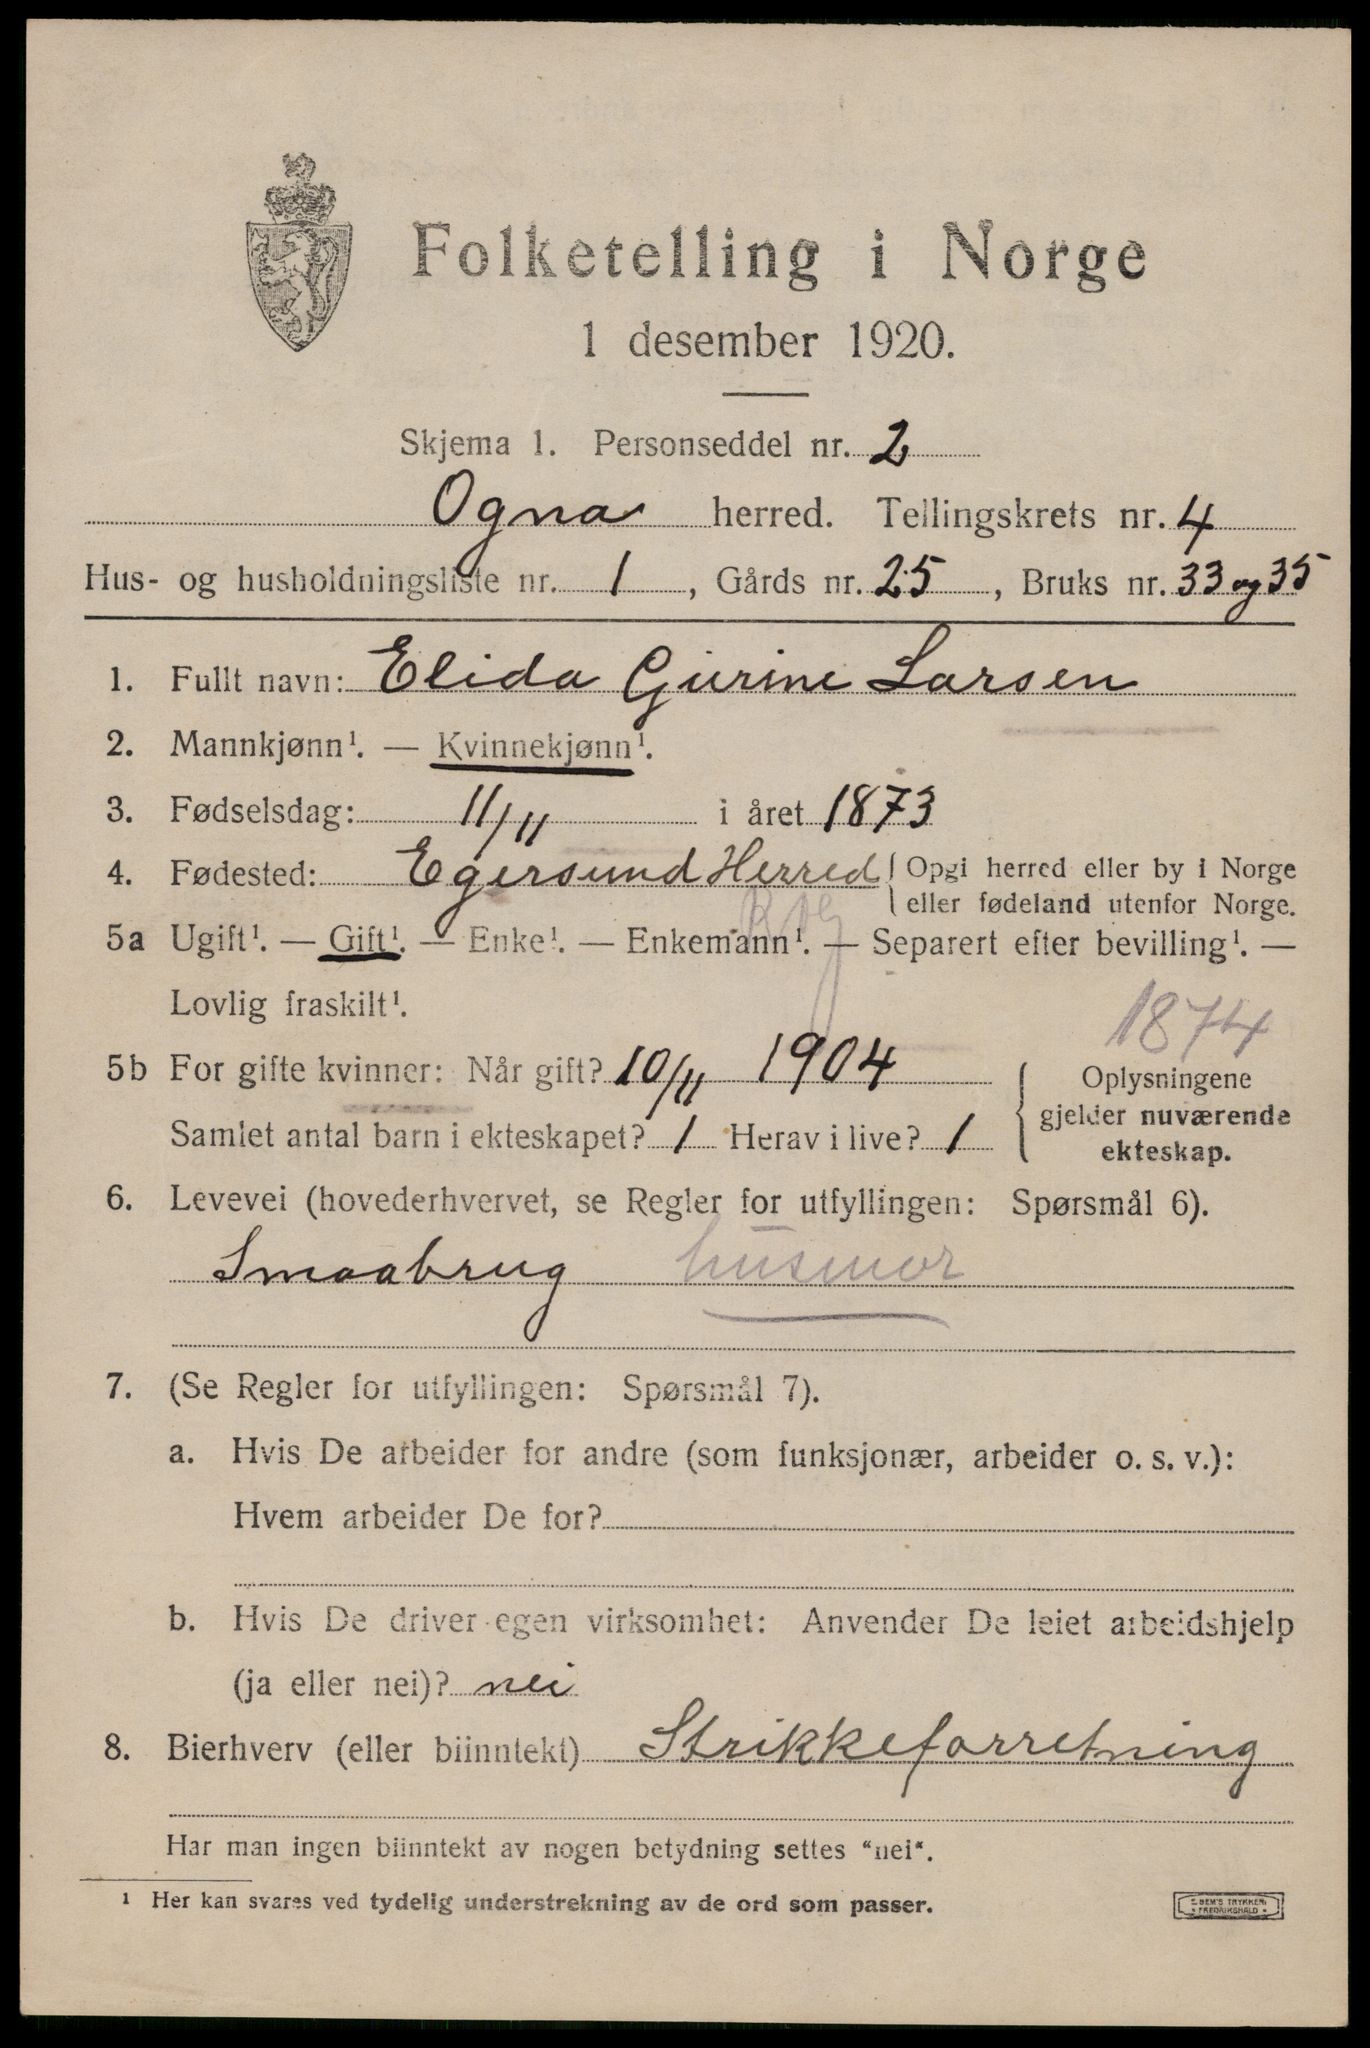 Folketelling i Norge
1 desember 1920.
Skjema 1. Personseddel nr. 2
Ogna herred. Tellingskrets nr. 4
Hus- og husholdningsliste nr. 1, Gårds nr. 25, Bruks nr. 33 og 35
1. Fullt navn: Elida Gurine Larsen
2. Mannkjønn¹. — Kvinnekjønn¹.
3. Fødselsdag: 11/11 i året 1873
4. Fødested: Egersund Herred { Opgi herred eller by i Norge
eller fødeland utenfor Norge.
5a Ugift¹. — Gift¹. — Enke¹. — Enkemann¹. — Separert efter bevilling¹. —
Lovlig fraskilt¹.
1874
5b For gifte kvinner: Når gift? 10/11 1904 { Oplysningene
gjelder nuværende
Samlet antal barn i ekteskapet? 1 Herav i live? 1
ekteskap.
6. Levevei (hovederhvervet, se Regler for utfyllingen: Spørsmål 6).
Smaabrug husmor
7. (Se Regler for utfyllingen: Spørsmål 7).
a. Hvis De arbeider for andre (som funksjonær, arbeider o. s. v.):
Hvem arbeider De for?
b. Hvis De driver egen virksomhet: Anvender De leiet arbeidshjelp
(ja eller nei)? nei
8. Bierhverv (eller biinntekt) Strikkeforretning
Har man ingen biinntekt av nogen betydning settes "nei".
¹ Her kan svares ved tydelig understrekning av de ord som passer.